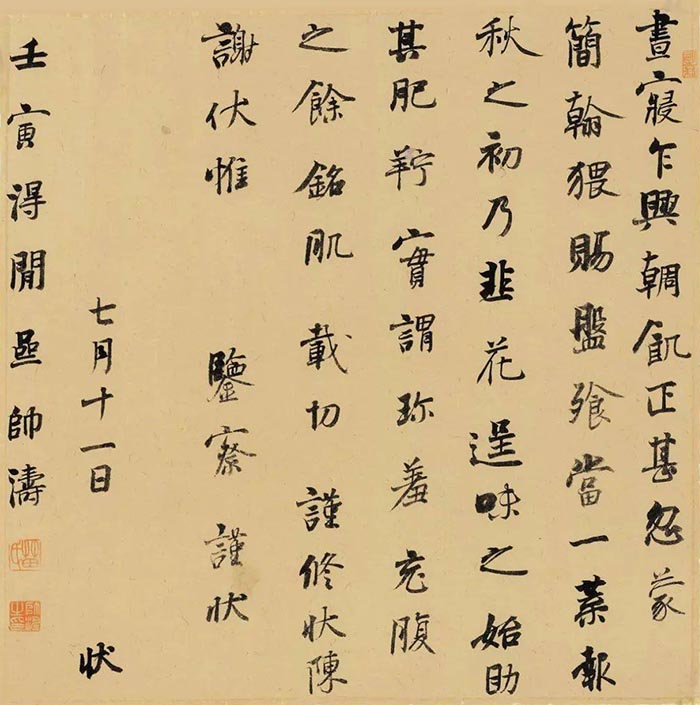 晝寢乍興輖飢正甚忽蒙
簡翰猥賜盤飧當一葉報
秋之初乃韭花逞味之始助
其肥羜實謂珍羞充腹
之餘銘肌載切 謹修狀陳
謝伏惟 鑒察謹狀
七月十一日 狀
壬寅得閒 帥濤